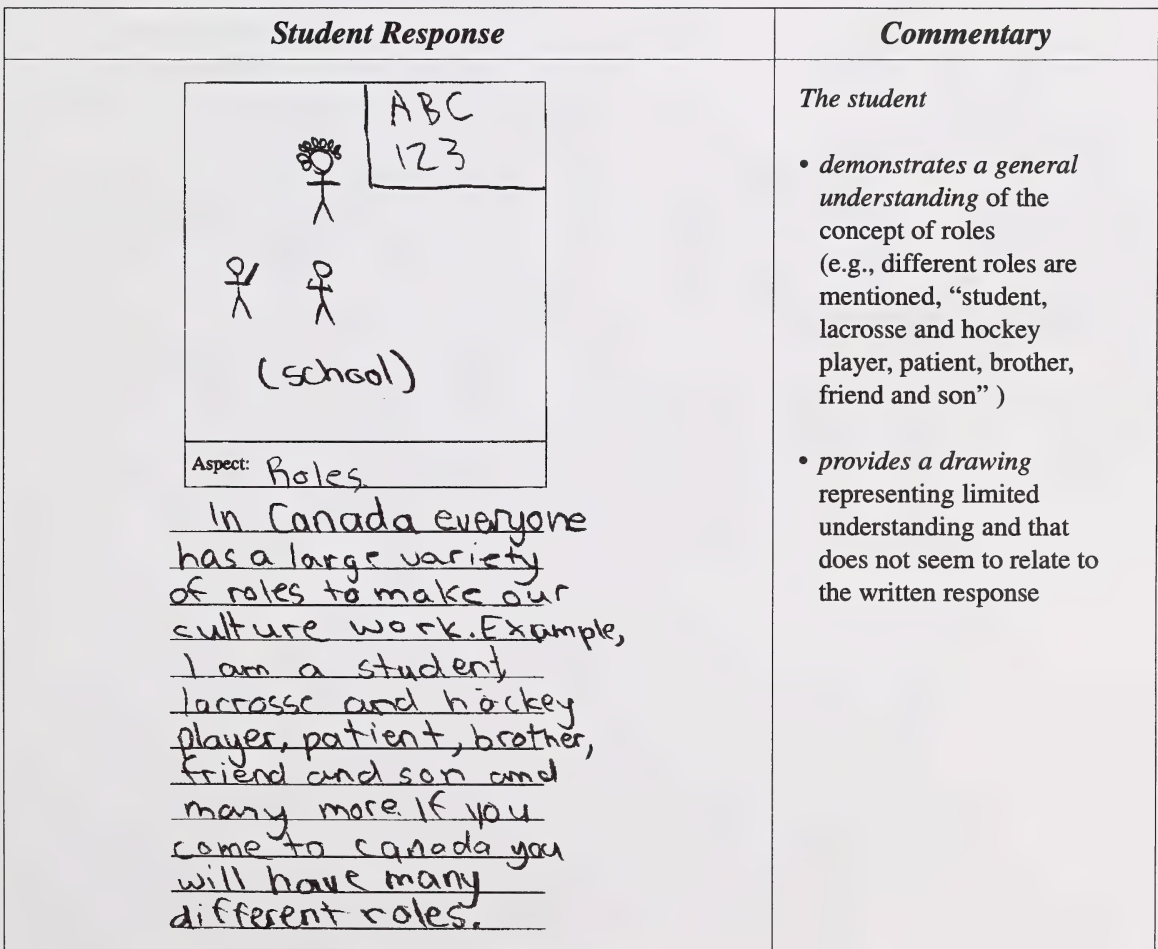 Student Response
Commentary
ABC
123
(school)
Aspect: Roles
In Canada everyone
has a large variety
of roles to make our
culture work. Example,
I am a student,
lacrosse and hockey
player, patient, brother,
friend and son and
many more. If you
come to canada you
will have many
different roles.
The student
• demonstrates a general
understanding of the
concept of roles
(e.g., different roles are
mentioned, “student,
lacrosse and hockey
player, patient, brother,
friend and son” )
• provides a drawing
representing limited
understanding and that
does not seem to relate to
the written response